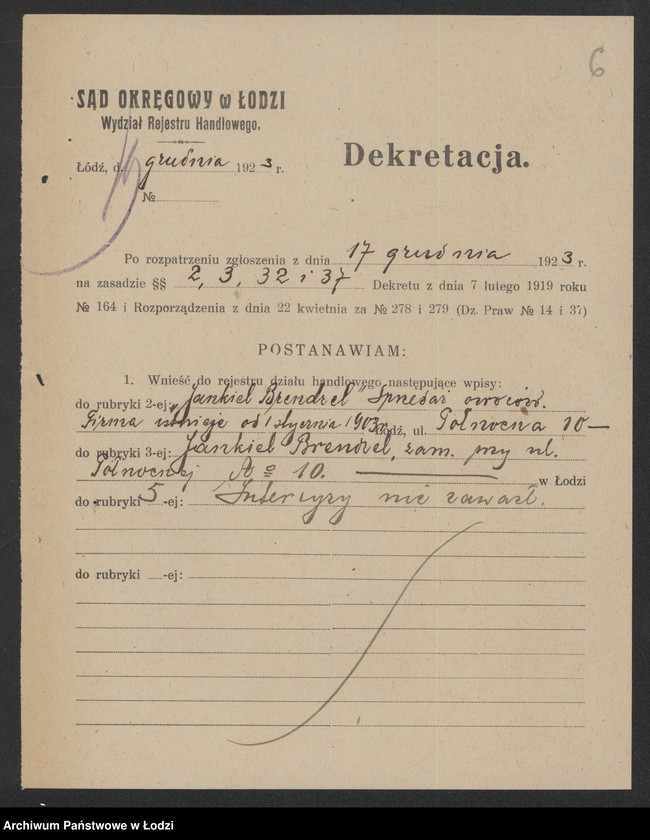 6
SĄD OKRĘGOWY w ŁODZI
Wydział Rejestru Handlowego.
Dekretacja.
Łódź, d. grudnia 1923 r.
№
Po rozpatrzeniu zgłoszenia z dnia 17 grudnia 1923 r.
na zasadzie §§ 2, 3, 32 i 37 Dekretu z dnia 7 lutego 1919 roku
№ 164 i Rozporządzenia z dnia 22 kwietnia za № 278 i 279 (Dz. Praw № 14 i 37)
POSTANAWIAM:
1. Wnieść do rejestru działu handlowego następujące wpisy:
do rubryki 2-ej: „Jankiel Brendzel" Sprzedaż owoców.
Firma istnieje od 1 stycznia 1903 r. Łódź, ul. Północna 10 —
do rubryki 3-ej: Jankiel Brendzel, zam. przy ul.
Północnej № 10. — w Łodzi
do rubryki 5-ej: Intercyzy nie zawarł.
do rubryki -ej:
Archiwum Państwowe w Łodzi